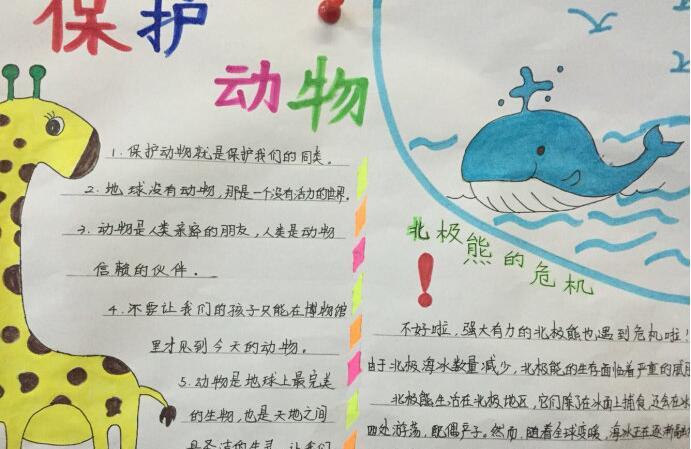 保护
动物
1.保护动物就是保护我们的同类。
2.地球没有动物,那是一个没有活力的世界。
3.动物是人类亲密的朋友,人类是动物
信赖的伙伴。
4.不要让我们的孩子只能在博物馆
里才见到今天的动物。
5.动物是地球上最完美
的生物,也是天地之间
最圣洁的生灵,让我们
北极熊的危机!
不好啦,强大有力的北极熊也遇到危机啦!
由于北极海冰数量减少,北极熊的生存面临着严重的威胁
北极熊生活在北极地区,它们除在冰面上捕食,还会在冰
四处游荡,配偶产子。然而,随着全球变暖,海冰正在逐渐融